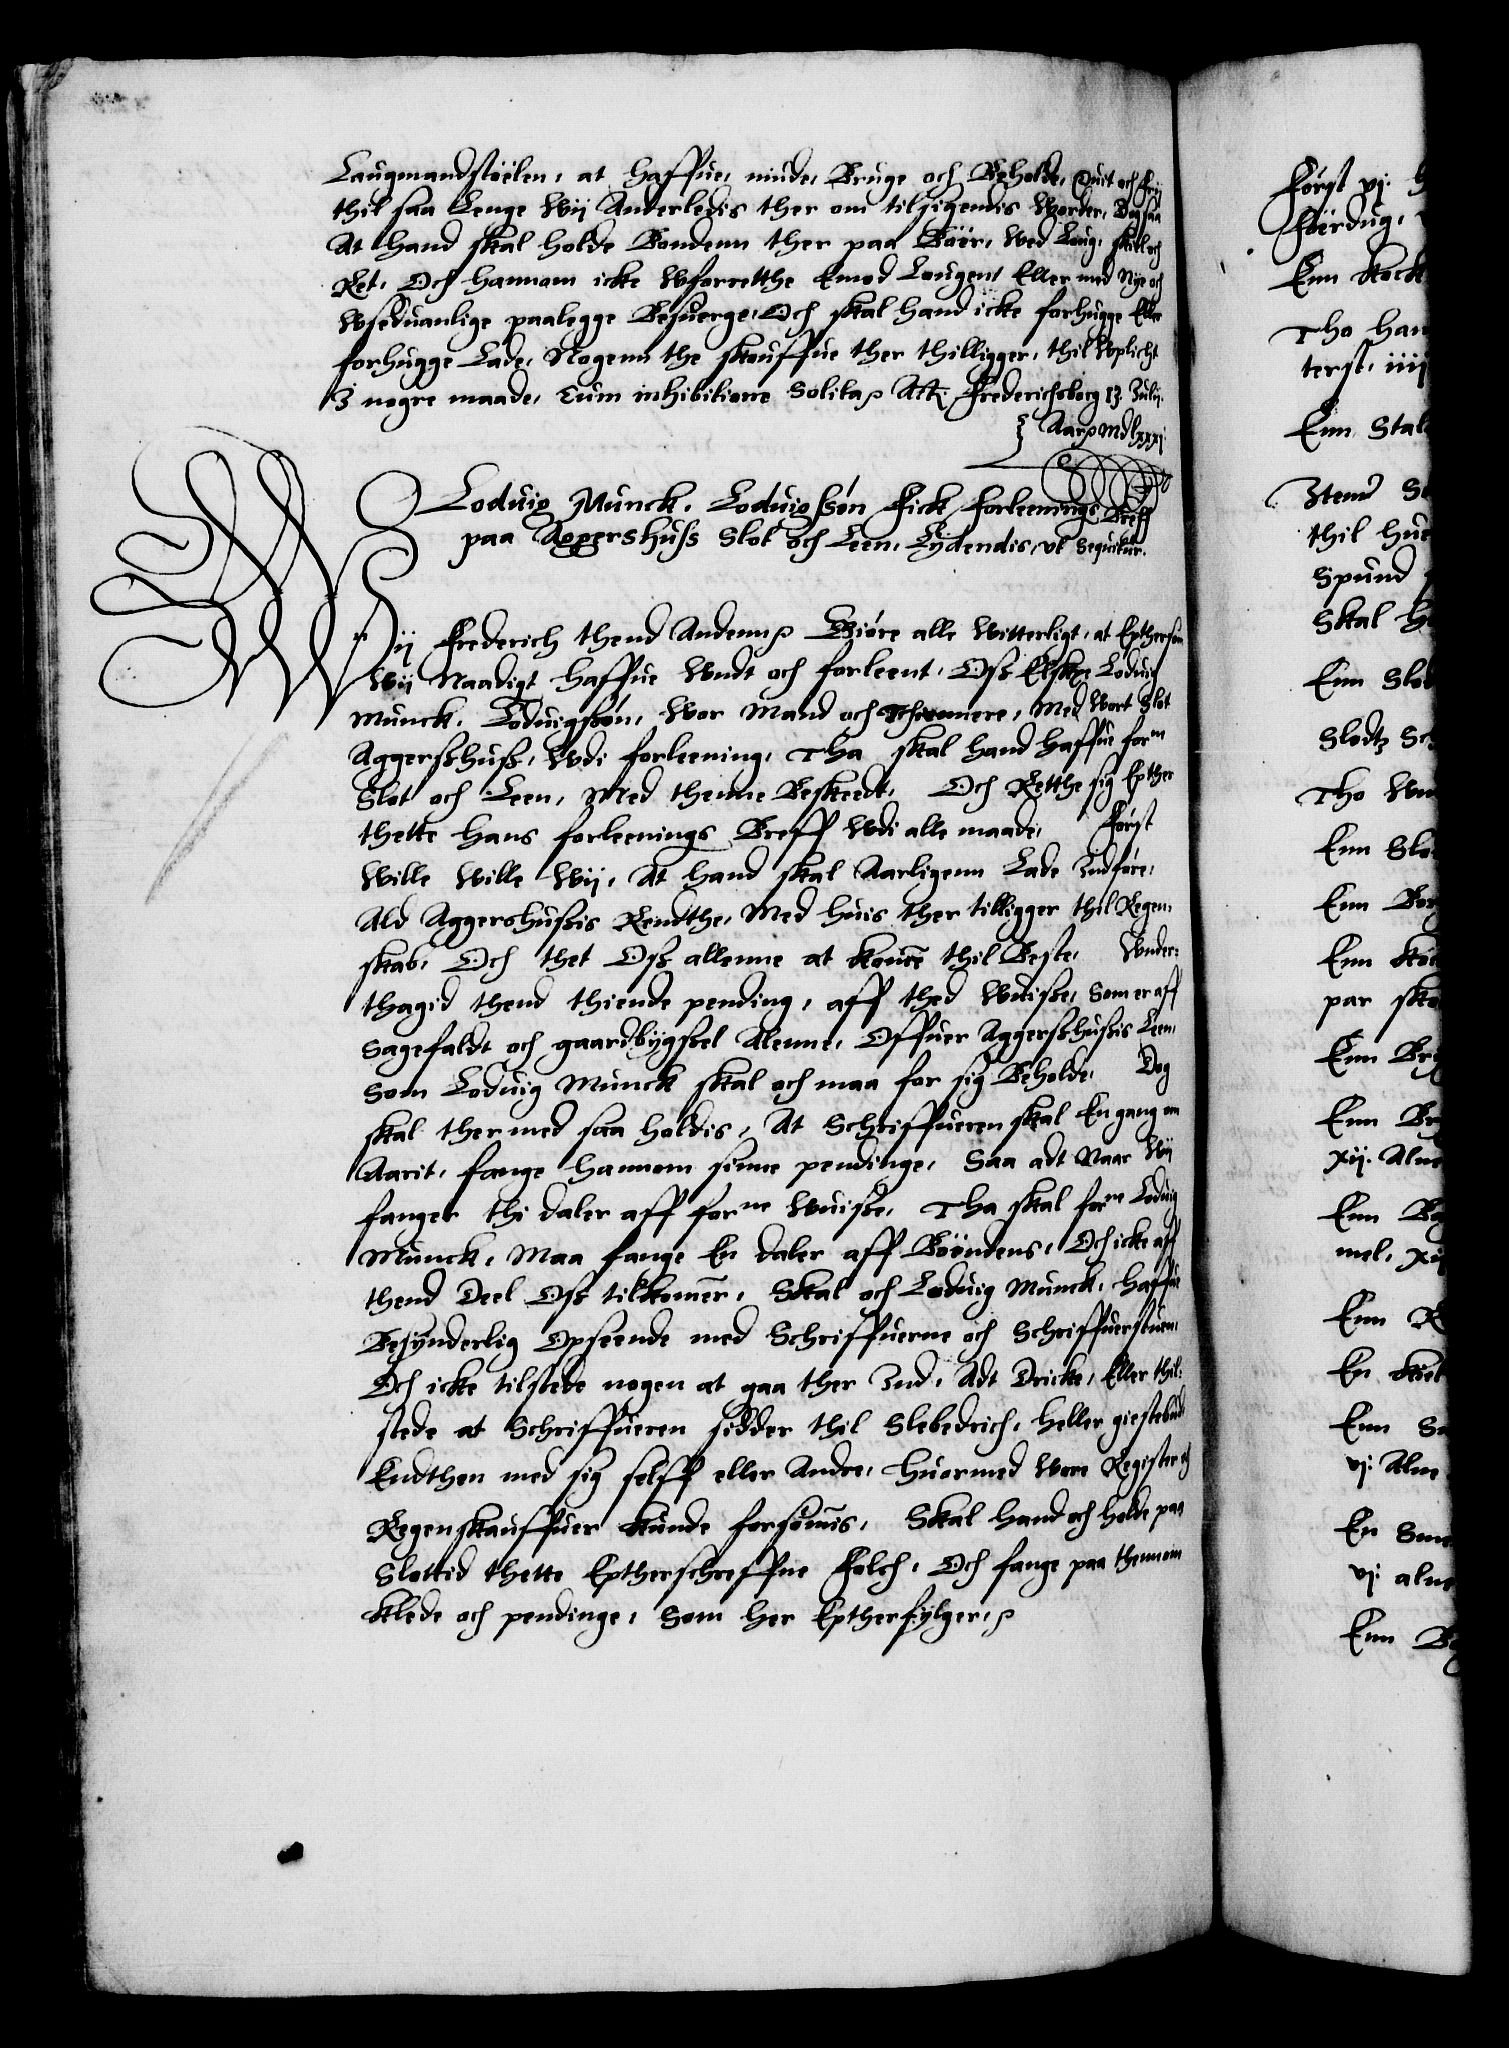 Laugmandstølen, at haffue, niude, Bruge och Beholde, Quit och frij
thil saa Lenge Wij Anderledis ther om tilsigendis Worder, Dog saa
At hand skal holde Bondenn ther paa Böör, Wed Loug, skiel och
Ret, Och hannom icke Wforretthe Emod Lougen, Eller med Nye och
Wseduanlige paalegge Besuerge, Och skal hand icke forhugge Eller
forhugge Lade, Nogenn the skouffue ther thilligger, thil Wplicht
I nogre maade, Cum inhibitione Solita, Act. Frederichsborg 13 Julij.
Aar MDlxxxj
Loduig Munck, Loduigssøn Fick Forleenings Breff
paa Aggershuss Slot och Leen, Lydendis, vt Sequitur.
Wij Frederich thend Andenn Giöre alle Witterligt, at Eptherson
Wij Naadigt haffue Wndt och forleent, Oss Elske Loduig
Munck, Loduigssön, Wor Mand och Thienere, Med Wort Slot
Aggersshuss, Wdi forleening, Tha skal hand haffue forn
Slot och Leen, Med thenne Beskeedt, Och Retthe sig Epther
thette hans forleenings Breff Wdi alle maade, Först
Wille Wille Wij, At hand skal Aarligenn Lade Indföre,
Ald Aggershussis Rendthe, Med huis ther tilligger thil Regen-
skab, Och thet Oss allenne at komme thil Beste, Wnder-
thagid thend thiende pending, aff thed Wuisse, Som er aff
Sagefaldt och gaardbygssel Alenne, Offuer Aggersshussis Leen,
Som Loduig Munck skal och maa for sig Beholde, Dog
skal ther med saa holdis, At Schriffueren skal En gang om
Aarit, fange hannom sinne pendinge, Saa adt Naar Wij
fanger thi daler aff forne Wuisse, Tha skal forn Loduig
Munck, Maa fange En daler aff Bööndens, Och icke aff
thend Deel Oss tilkommer, Skal och Loduig Munck, haffue
Besynderlig Opseende med Schriffuerne och Schriffuerstuen,
Och icke tilstede nogen at gaa ther Ind, Adt Dricke, Eller thil-
stede at Schriffueren sidder thil Slebedrich, heller giestebud
Endthen med sig selff eller Andre, huormed Wore Register och
Regenskauffuer kunde forsömmis, Skal hand och holde paa
Slottid thette Eptherschreffne Folch, Och fange paa thennom
Klede och pendinge, Som her Eptherfylger,
Först vj.
Enn kock
Tho
terst, iiij
Enn Stal
Item
thil
Spund
Skal
Enn Slo
Slodtz Sc
Tho
Enn Slo
Enn
Enn
par
Enn
Enn
xij. Alne
Enn
mel,
Enn
En
Enn
vj. Alne
En Sme
vj. alne
Enn